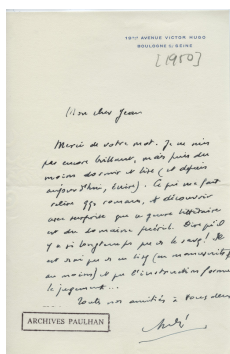 19BIS AVENUE VICTOR HUGO
BOULOGNE S/ SEINE
[1950]
Mon cher Jean
Merci de votre mot. Je ne suis
pas encore brillant, mais puis du
moins dormir et lire (et depuis
aujourd'hui, écrire). Ce qui me fait
relire qqs romans, et découvrir
avec surprise que ce genre littéraire
est du domaine puéril. D'où qu'il
y a si longtemps que je le savais! Il
est vrai que je ne lis (en manuscrits
au moins) et que l'instruction forme
le jugement...
Toutes nos amitiés à vous deux
André
ARCHIVES PAULHAN